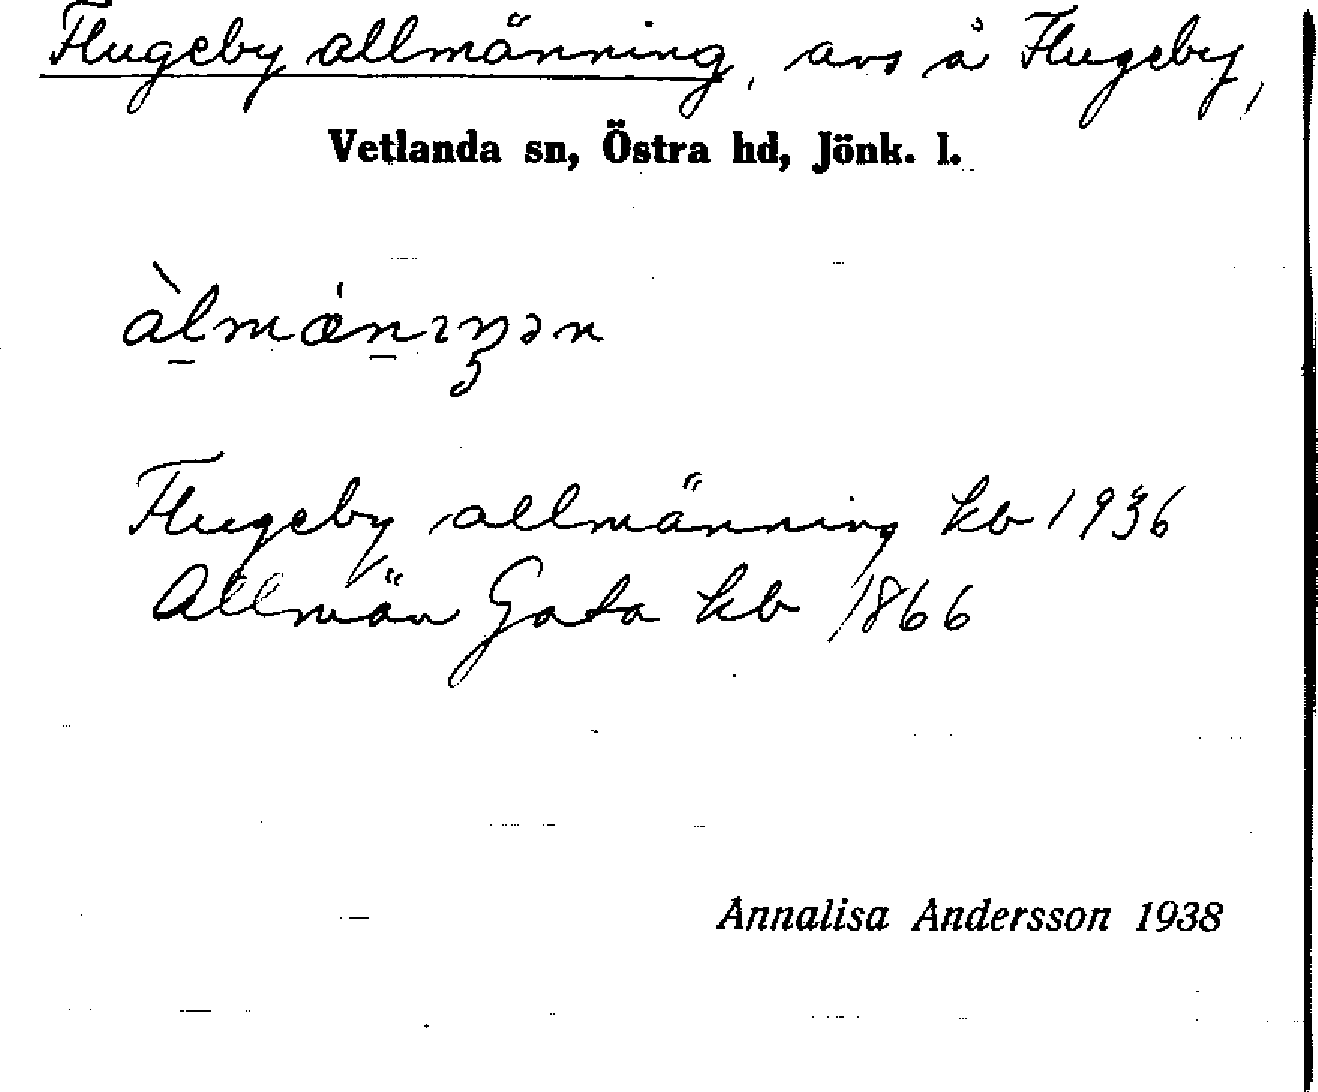 Flugeby allmänning, avs å Flugeby,
Vetlanda sn, Östra hd, Jönk. l.
àlmǽnıŋən
Flugeby allmänning kb 1936
Allmän Gata kb 1866
Annalisa Andersson 1938